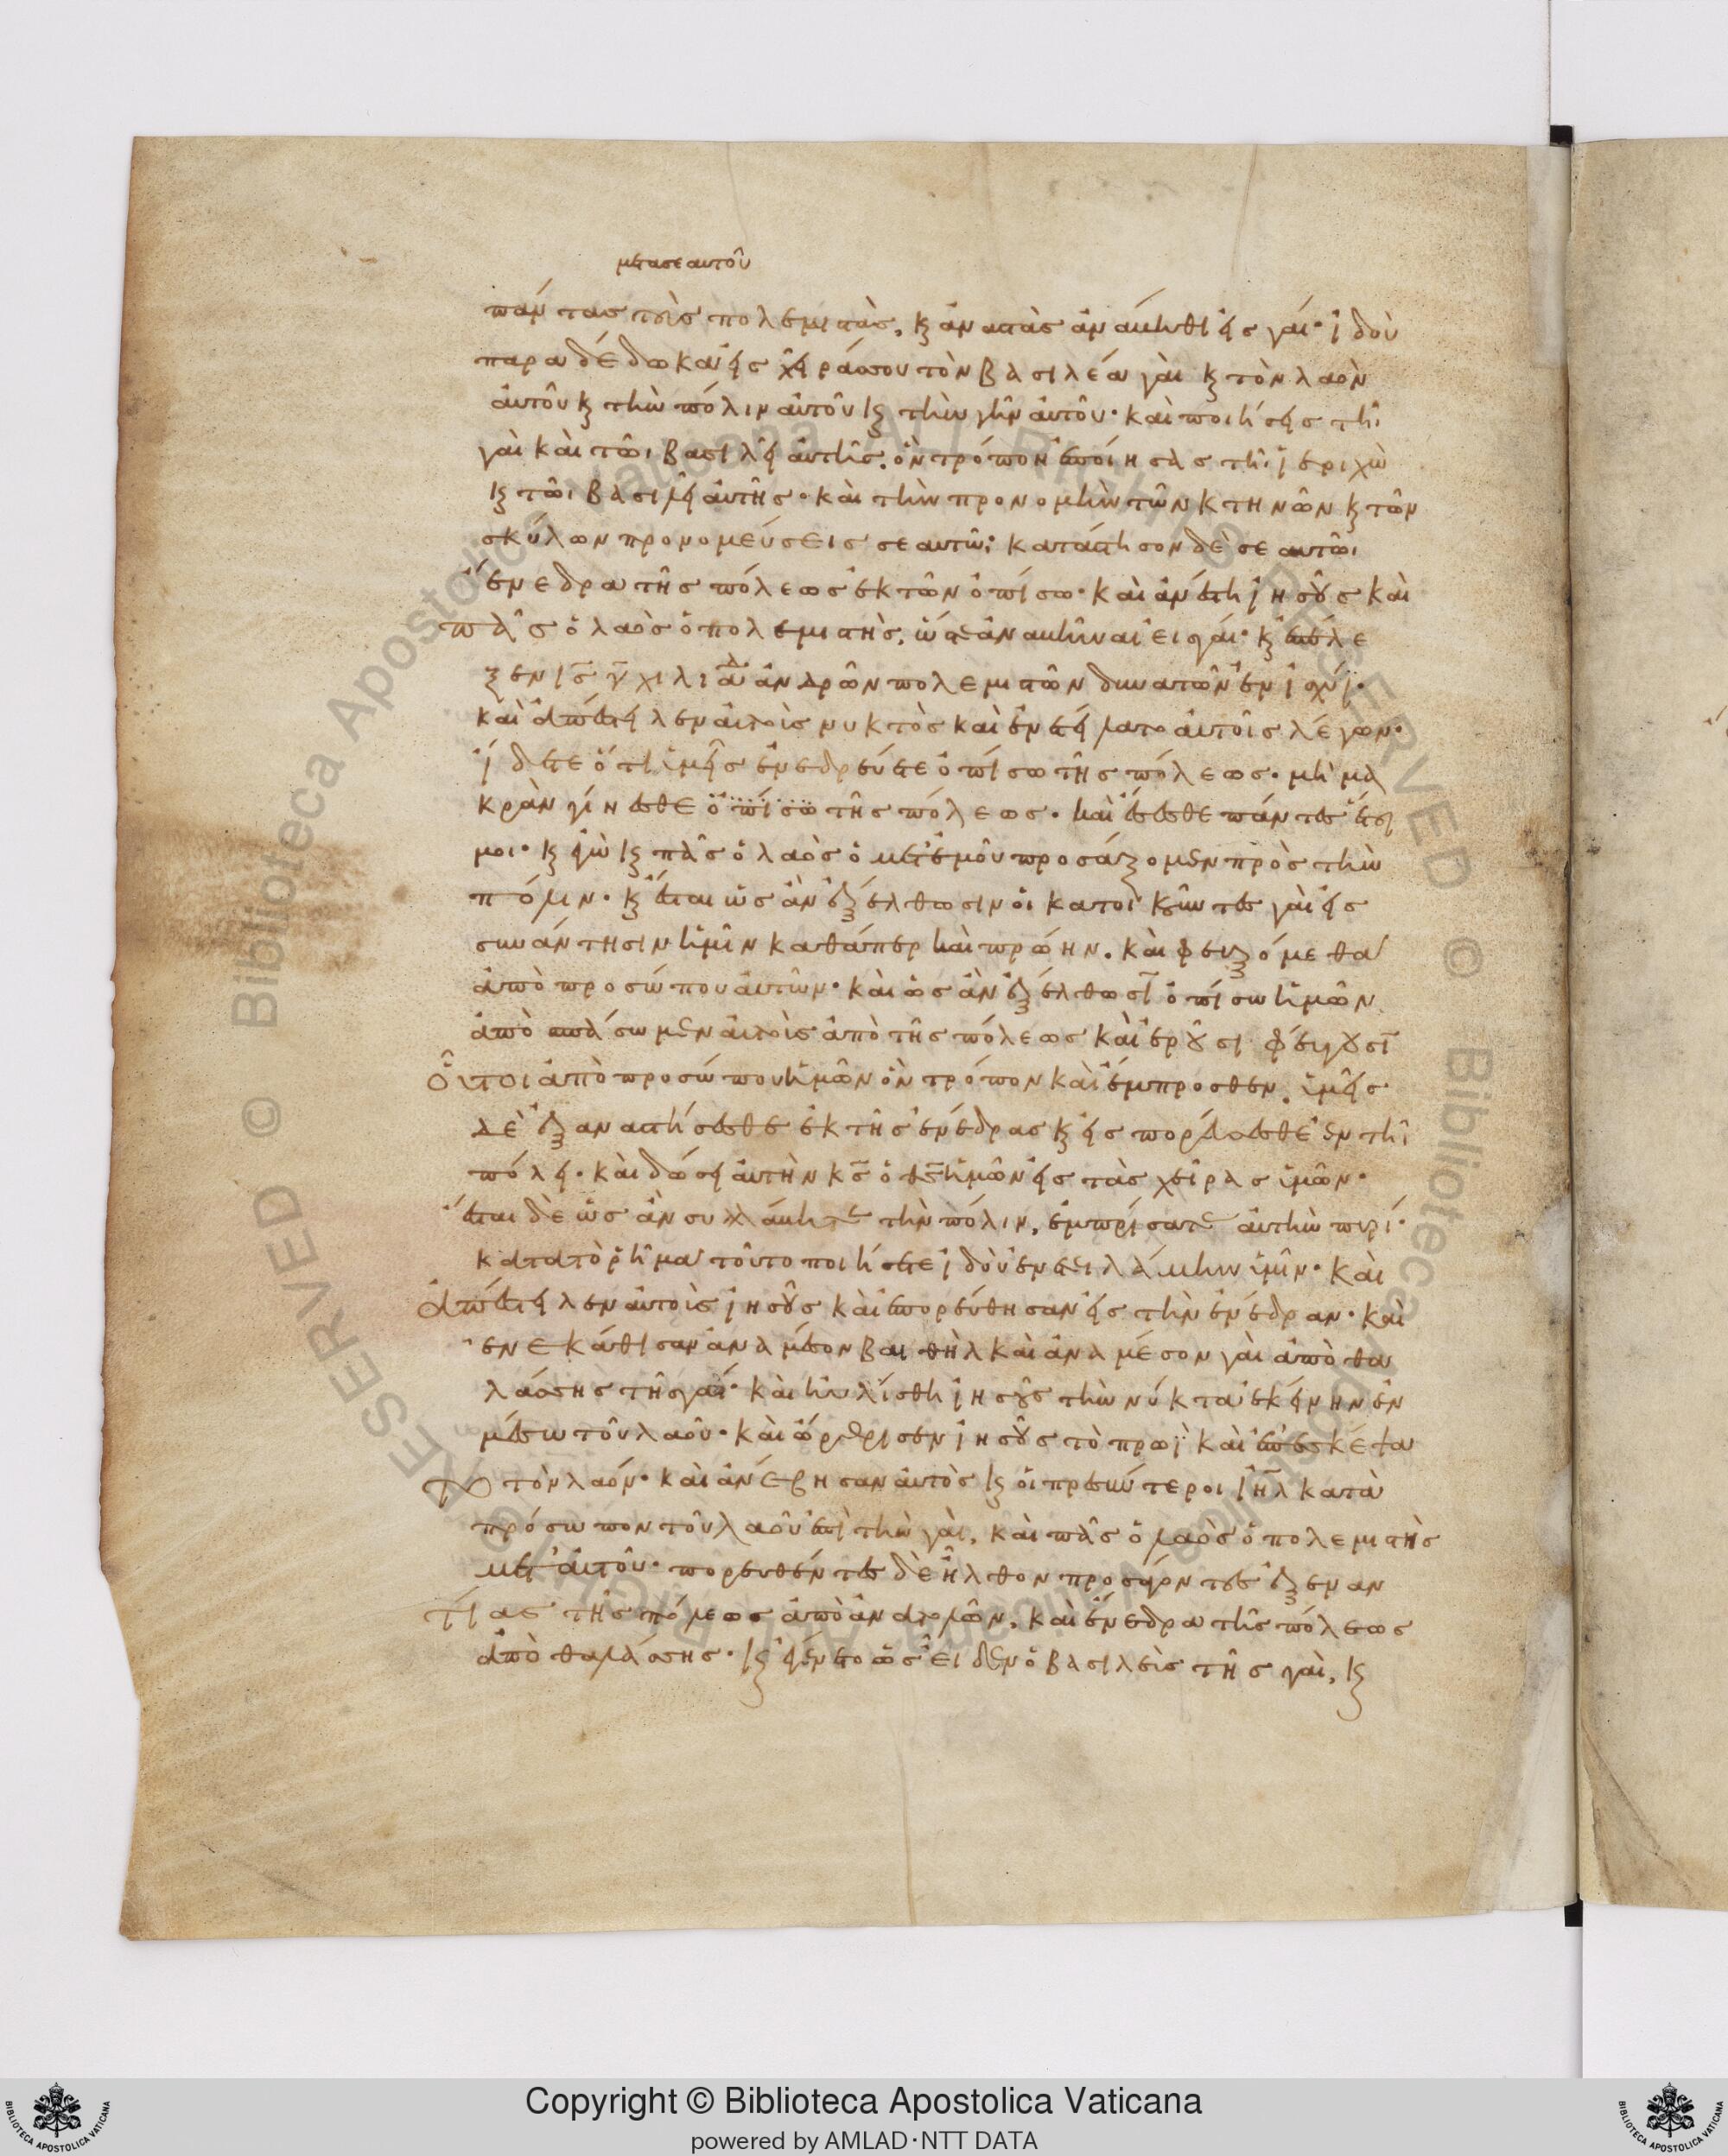 μετα σεαυτοῦ
πάντας τοὺς πολεμιστὰς, κ ἀναστὰς ἀνάστηθι εἰς γάι· ἰδοὺ
παραδέδωκα εἰς χεῖράς σου τὸν βασιλέα γὰι κ τὸν λαὸν
αὐτοῦ κ τὴν πόλιν αὐτοῦ κ τὴν γῆν αὐτοῦ· καὶ ποιήσεις τῆι
γὰι καὶ τῶι βασιλεῖ αὐτῆς. ὃν τρόπον ἐποίησας τῆι ἰεριχὼ
κ τῶι βασιλεῖ αὐτῆς· καὶ τὴν προνομὴν τῶν κτηνῶν κ τῶν
σκύλων προνομεύσεις σεαυτῶι· κατάστησον δὲ σεαυτῶι
ἔνεδρα τῆς πόλεως ἐκ τῶν ὀπίσω· καὶ ἀνέστη ἰησοῦς καὶ
πᾶς ὁ λαὸς ὁ πολεμιστὴς, ὥστε ἀναστῆναι εἰς γάι· κ ἐπέλε
ξεν ι̅ς̅ γ̅ χιλιάδ ἀνδρῶν πολεμιστῶν δυνατῶν ἐν ἰσχύϊ·
καὶ ἀπέστειλεν αὐτοὺς νυκτὸς καὶ ἐνετείλατο αὐτοῖς λέγων·
ἴδετε ὅτι ὑμεῖς ἐνεδρεύετε ὀπίσω τῆς πόλεως· μὴ μα
κρὰν γίνεσθε ὀπίσω τῆς πόλεως· καὶ ἔσεσθε πάντες ἕτοι
μοι· κ ἐγὼ κ πᾶς ὁ λαὸς ὁ μετ' ἐμοῦ προσάξομεν πρὸς τὴν
πόλιν· κ ἔσται ὡς ἂν ἐξέλθωσιν οἱ κατοικοῦντες γὰι εἰς
συνάντησιν ἡμῖν καθάπερ καὶ πρώην. καὶ φευξόμεθα
ἀπὸ προσώπου αὐτῶν· καὶ ὡς ἂν ἐξέλθωσι̅ ὀπίσω ἡμῶν
ἀποσπάσωμεν αὐτοὺς ἀπὸ τῆς πόλεως καὶ ἐροῦσι φεύγουσι̅
οὗτοι ἀπὸ προσώπου ἡμῶν ὃν τρόπον καὶ ἔμπροσθεν. ὑμεῖς
δὲ ἐξαναστήσεσθε ἐκ τῆς ἐνέδρας κ εἰσπορεύσεσθε ἐν τῆι
πόλει· καὶ δώσει αὐτὴν κ̅ς̅ ὁ θ̅ς̅ ἡμῶν εἰς τὰς χεῖρας ὑμῶν·
ἔσται δὲ ὡς ἂν συλλάβητε τὴν πόλιν, ἐμπρίσατε αὐτὴν πυρί·
κατα τὸ ῥῆμα τοῦτο ποιήσετε ἰδοὺ ἐντέταλμαι ὑμῖν· καὶ
ἀπέστειλεν αὐτοὺς ἰησοῦς καὶ ἐπορεύθησαν εἰς τὴν ἐνέδραν· καὶ
ἐνεκάθισαν ἀναμέσον βαιθὴλ καὶ ἀναμέσον γὰι ἀπὸ θα
λάσσης τῆς γάι· καὶ ηὐλίσθη ἰησοῦς τὴν νύκτα ἐκείνην ἐν
μέσω τοῦ λαοῦ· καὶ ὤρθρισεν ἰησοῦς τὸ πρωῒ καὶ ἐπεσκέψα
το τὸν λαόν· καὶ ἀνέβησαν αὐτὸς κ οἱ πρεσβύτεροι ι̅η̅λ̅ κατὰ
πρόσωπον τοῦ λαοῦ ἐπὶ τὴν γὰι, καὶ πᾶς ὁ λαὸς ὁ πολεμιστὴς
μετ' αὐτοῦ· πορευθέντες δὲ ἦλθον προσάγοντες ἐξεναν
τίας τῆς πόλεως ἀπὸ ἀνατολῶν, καὶ ἔνεδρα τῆς πόλεως
ἀπὸ θαλάσσης· κ ἐγένετο ὡς εἶδεν ὁ βασιλεὺς τῆς γὰι, κ
Copyright © Biblioteca Apostolica Vaticana
powered by AMLAD·NTT DATA